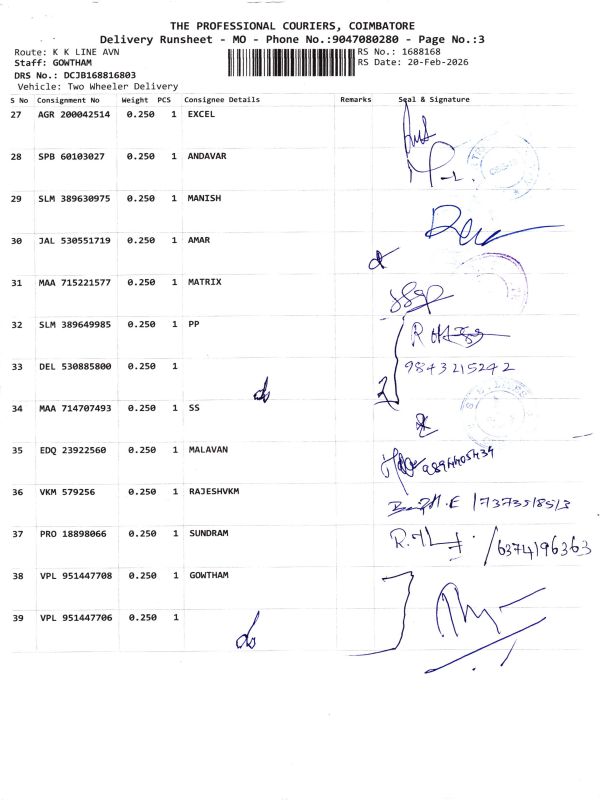 THE PROFESSIONAL COURIERS, COIMBATORE
Delivery Runsheet - MO - Phone No.:9047080280 - Page No.:3
Route: K K LINE AVN RS No.: 1688168
Staff: GOWTHAM RS Date: 20-Feb-2026
DRS No.: DCJB168816803
Vehicle: Two Wheeler Delivery
S No Consignment No Weight PCS Consignee Details Remarks Seal & Signature
27 AGR 200042514 0.250 1 EXCEL
28 SPB 60103027 0.250 1 ANDAVAR
29 SLM 389630975 0.250 1 MANISH
30 JAL 530551719 0.250 1 AMAR
31 MAA 715221577 0.250 1 MATRIX
32 SLM 389649985 0.250 1 PP
33 DEL 530885800 0.250 1 do 2 9843215242
34 MAA 714707493 0.250 1 SS
35 EDQ 23922560 0.250 1 MALAVAN
36 VKM 579256 0.250 1 RAJESHVKM
37 PRO 18898066 0.250 1 SUNDRAM /6374196363
38 VPL 951447708 0.250 1 GOWTHAM
39 VPL 951447706 0.250 1 do